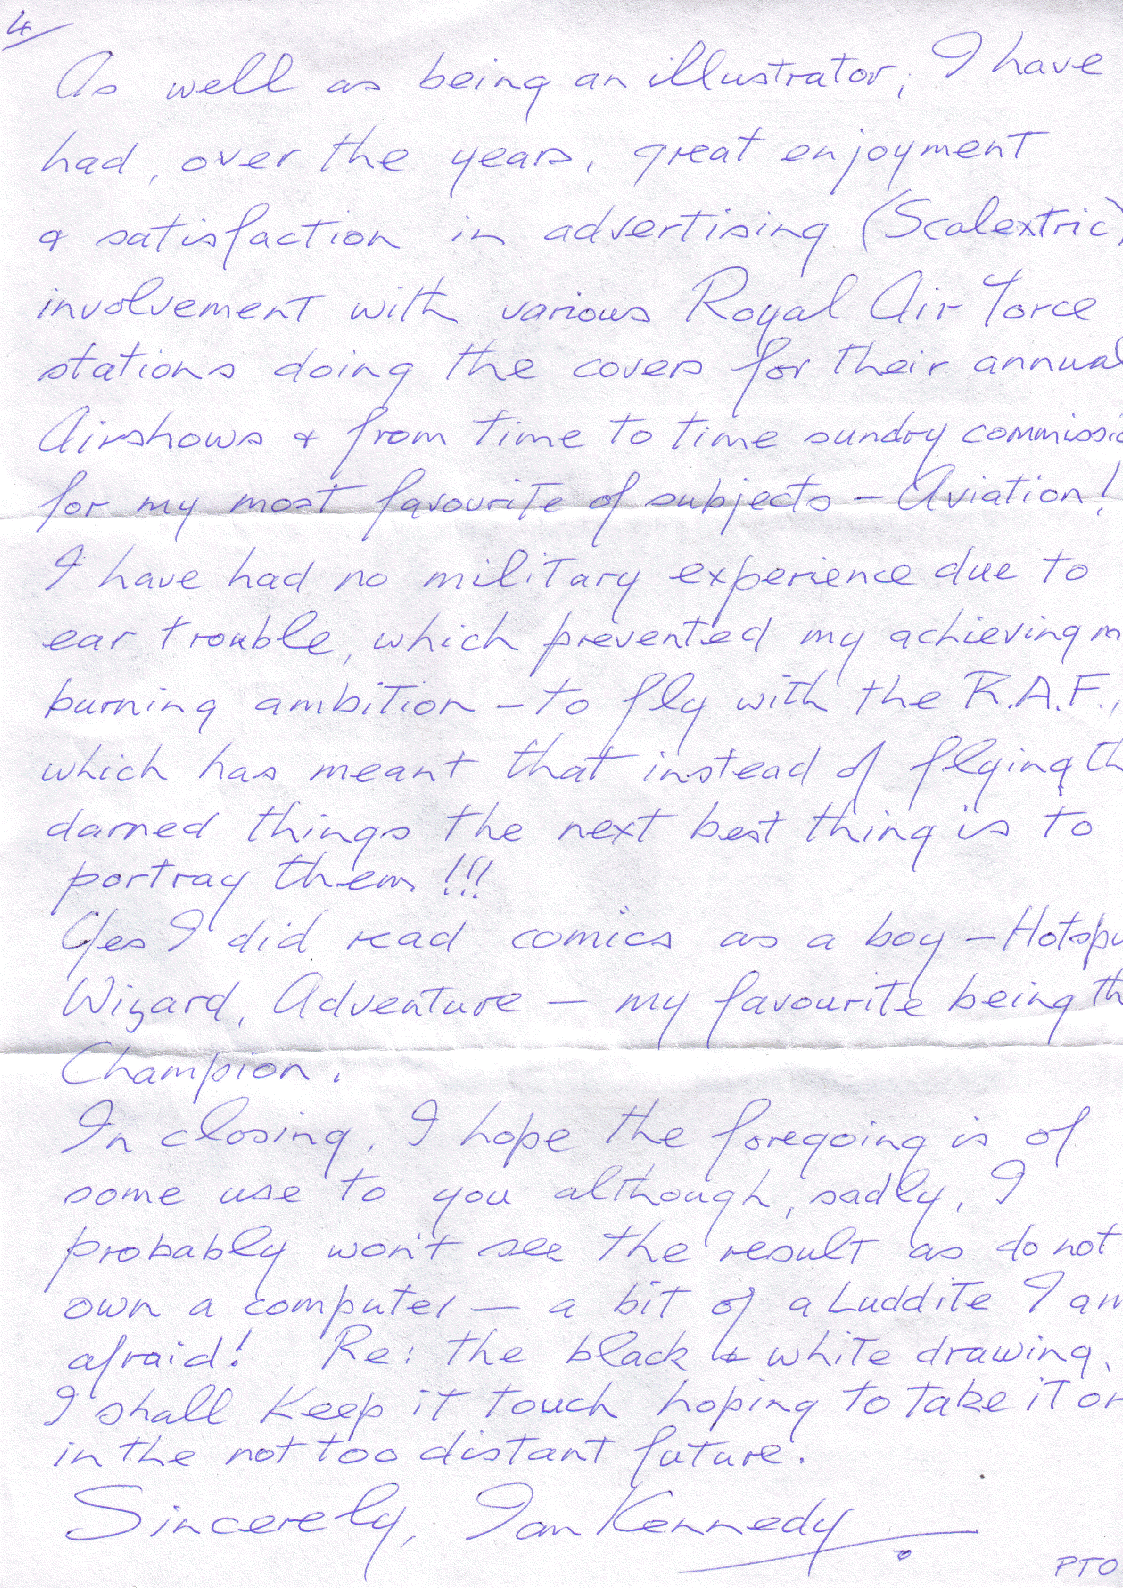 4/
As well as being an illustrator, I have
had, over the years, great enjoyment
& satisfaction in advertising (Scalextric)
involvement with various Royal Air Force
stations doing the covers for their annual
Airshows & from time to time sundry commissio
for my most favourite of subjects – Aviation!
I have had no military experience due to
ear trouble, which prevented my achieving m
burning ambition – to fly with the R.A.F.,
which has meant that instead of flying th
darned things the next best thing is to
portray them!!!
Yes I did read comics as a boy – Hotspu
Wizard, Adventure – my favourite being th
Champion.
In closing, I hope the foregoing is of
some use to you although, sadly, I
probably won't see the result as do not
own a computer – a bit of a Luddite I am
afraid! Re: the black & white drawing,
I shall keep it touch hoping to take it on
in the not too distant future.
Sincerely, Ian Kennedy
PTO